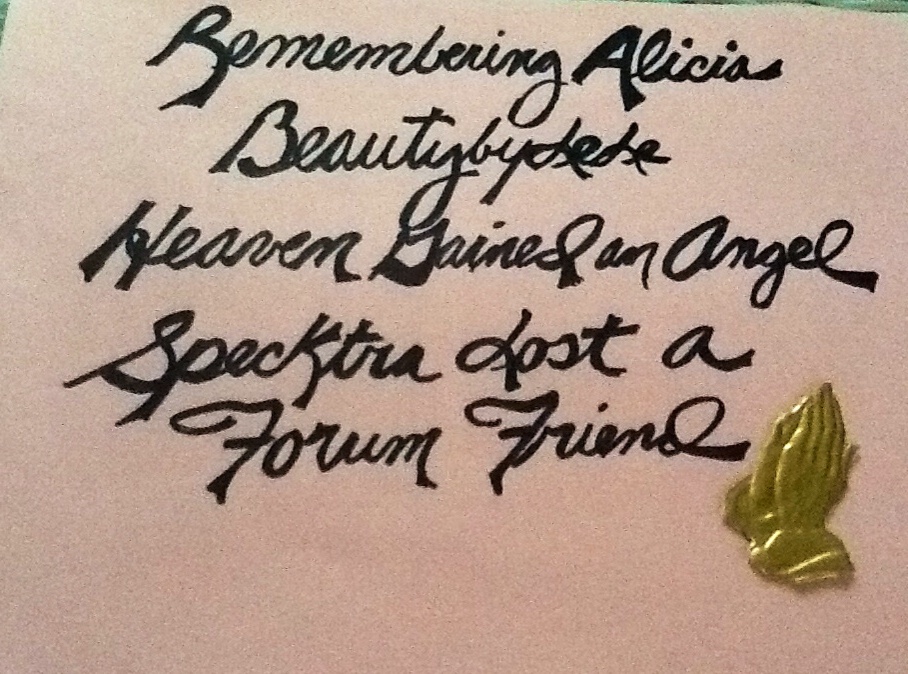 Remembering Alicia
Beautybylele
Heaven Gained an Angel
Specktra Lost a
Forum Friend